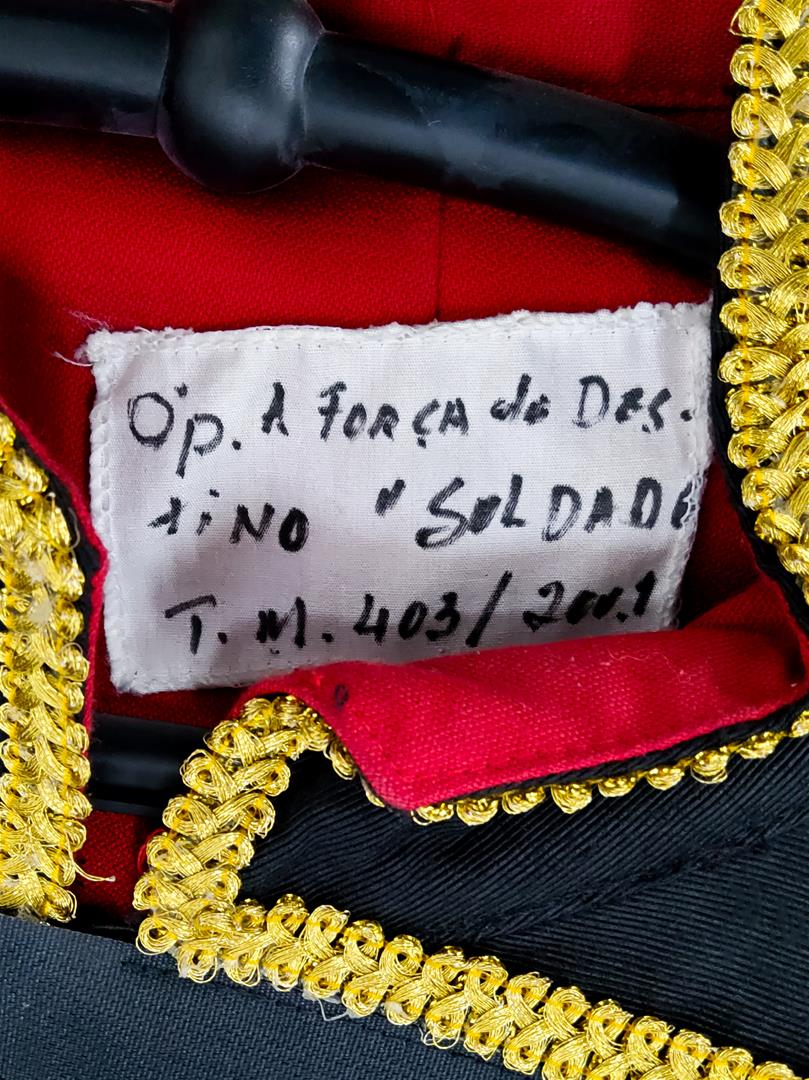 Op. A FORÇA do DES-
tiNO "SOLDADO
T.M. 403/2001